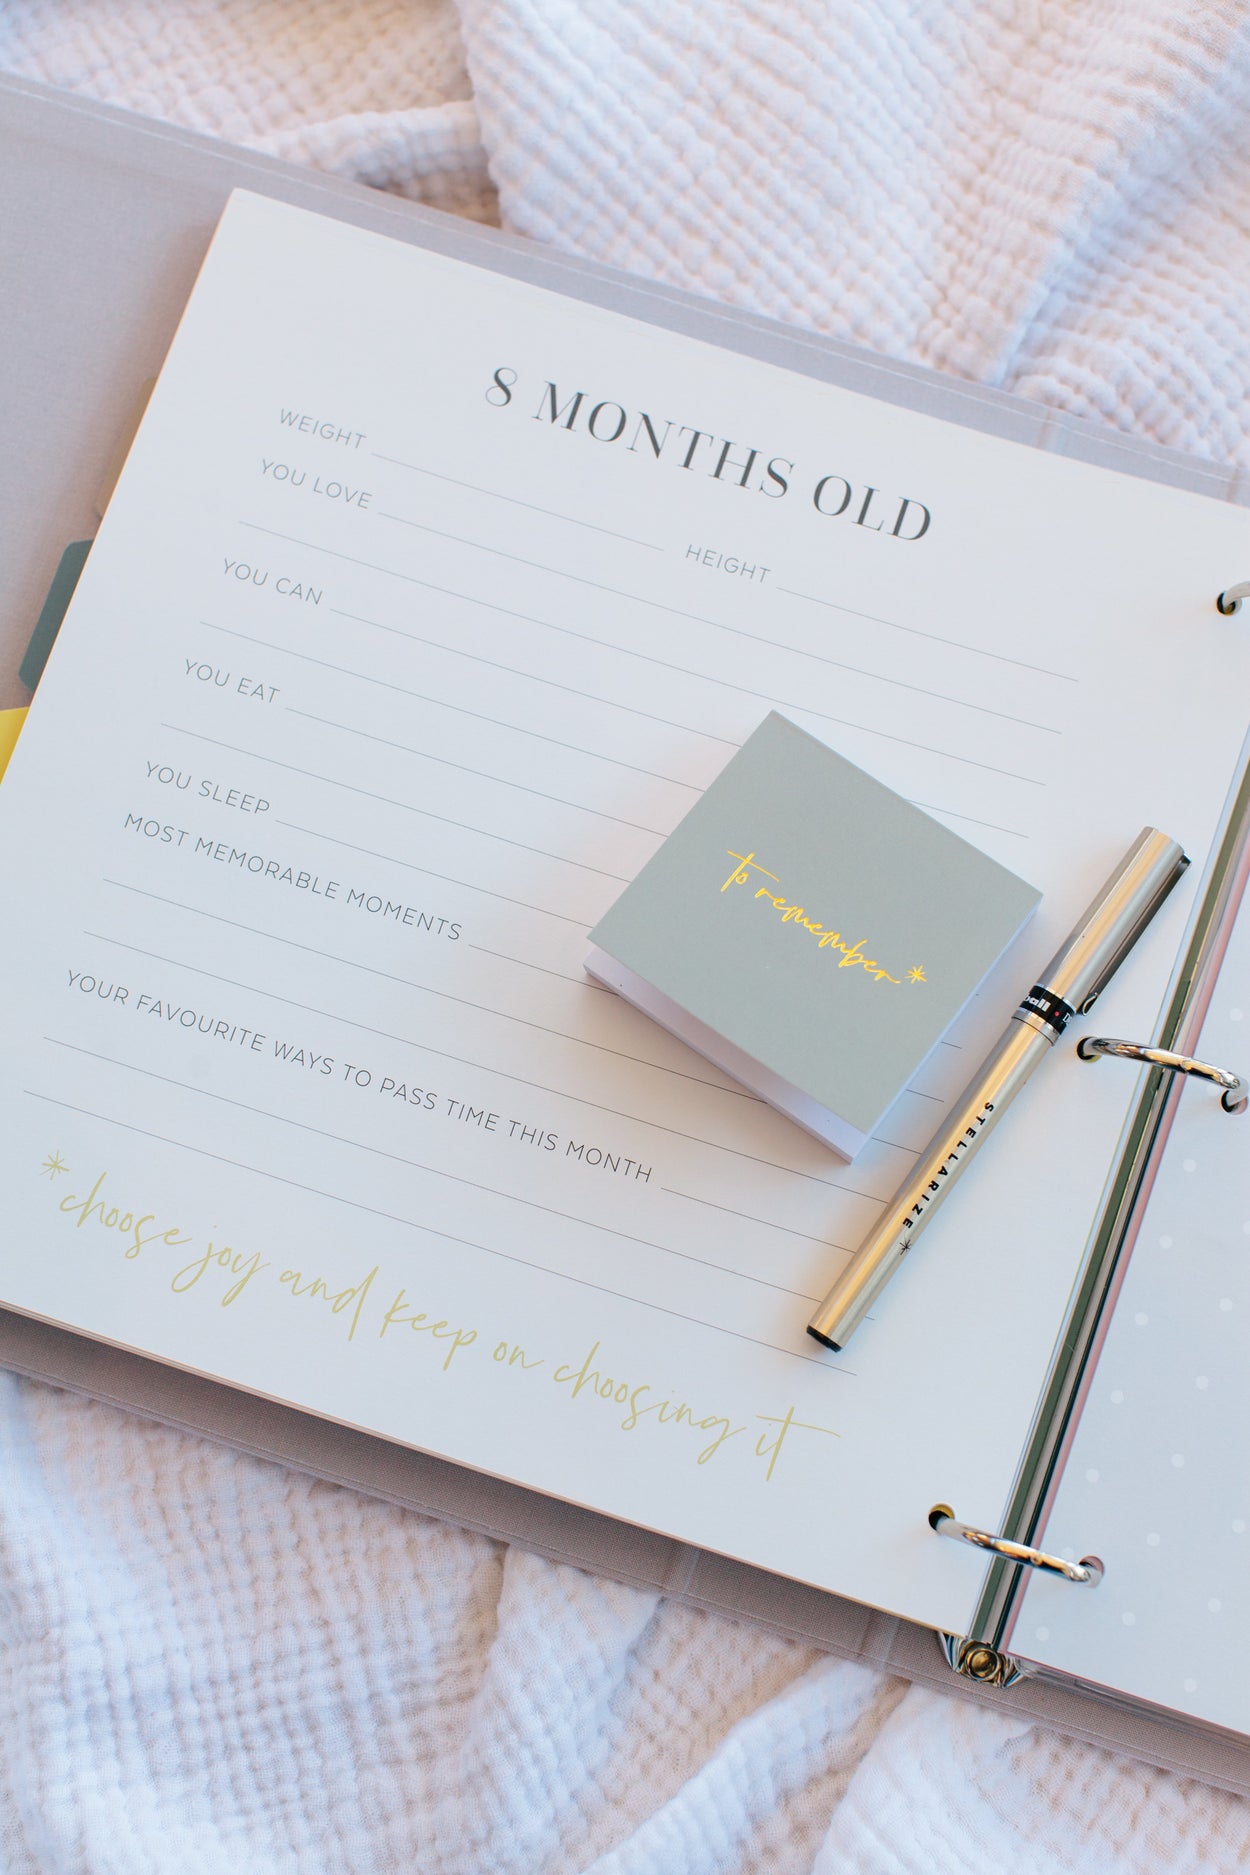 8 MONTHS OLD
WEIGHT
HEIGHT
YOU LOVE
YOU CAN
YOU EAT
YOU SLEEP
MOST MEMORABLE MOMENTS
YOUR FAVOURITE WAYS TO PASS TIME THIS MONTH
*choose joy and keep on choosing it
to remember*
STELLARIZE*